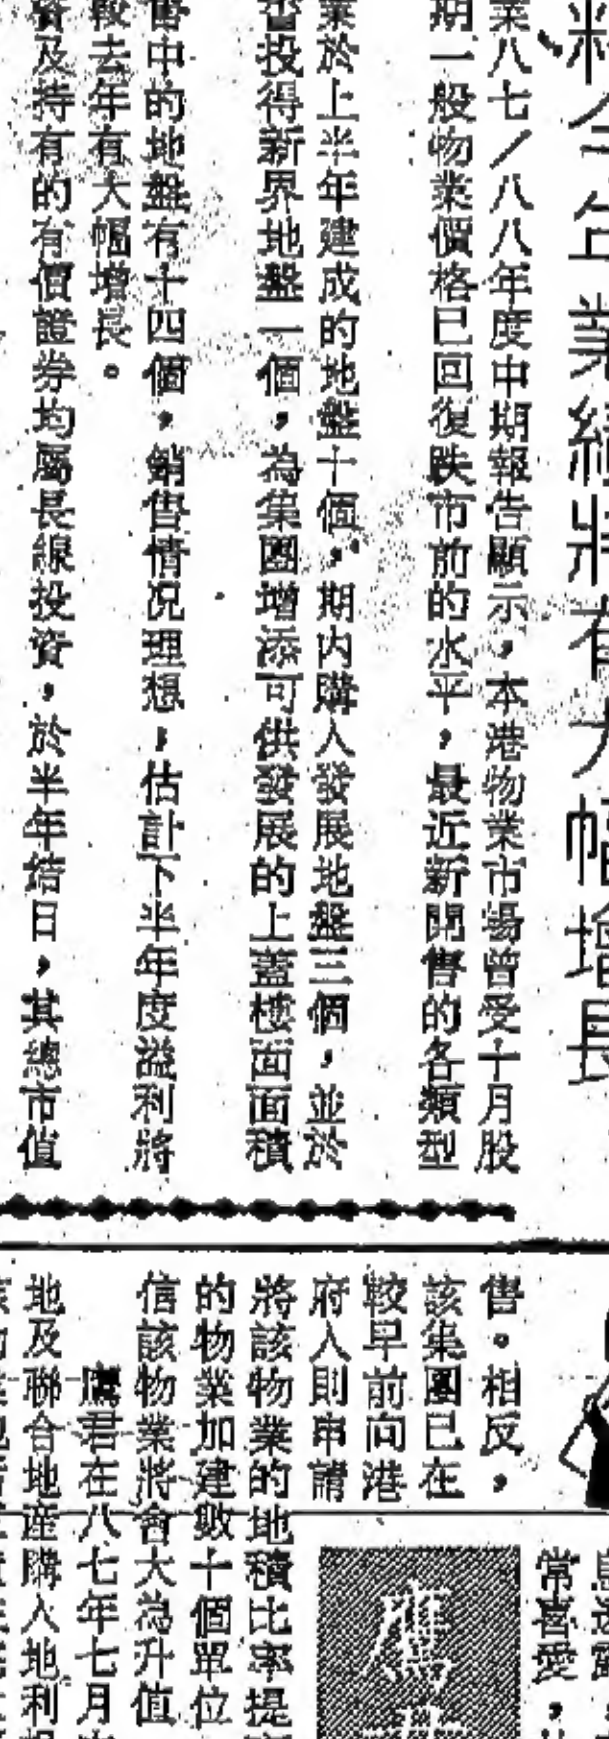 料全年業績將有大幅增長
業八七/八八年度中期報告顯示,本港物業市場曾受十月股
期一般物業價格已回復跌市前的水平,最近新開售的各類型
業於上半年建成的地盤十個,期内購入發展地盤三個,並於
投得新界地盤一個,為集團增添可供發展的上蓋樓面面積
中的地盤有十四個,銷售情況理想,估計下半年度溢利將
較去年有大幅增長。
資及持有的有價證券均屬長線投資,於半年結日,其總市值
售。相反,
該集團已在
較早前向港
府入則申請
將該物業的地積比率提
的物業加建數十個單位
信該物業將會大為升值
鷹君在八七年七月
地及聯合地產購入地利根
常喜愛,
鷹